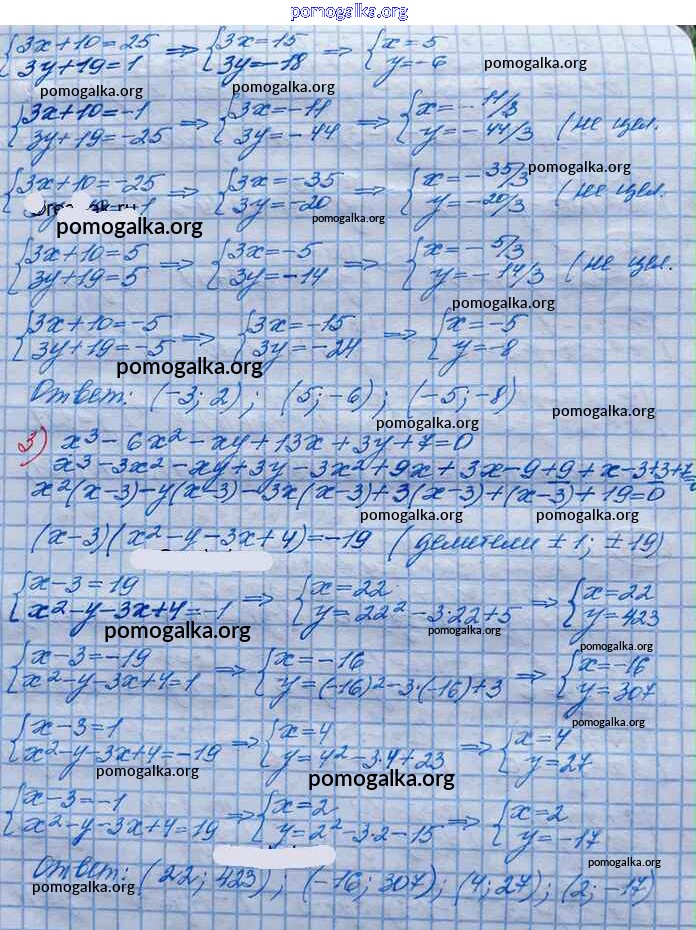 pomogalka.org
{3x+10=25 ⇒ {3x=15 ⇒ {x=5
{3y+19=1 {3y=-18 {y=-6 pomogalka.org
pomogalka.org pomogalka.org
{3x+10=-1 ⇒ {3x=-11 ⇒ {x=-11/3
{3y+19=-25 {3y=-44 {y=-44/3 (не цел.
pomogalka.org
{3x+10=-25 ⇒ {3x=-35 ⇒ {x=-35/3
{3y=-20 {y=-20/3 (не цел.
pomogalka.org pomogalka.org
{3x+10=5 ⇒ {3x=-5 ⇒ {x=-5/3
{3y+19=5 {3y=-14 {y=-14/3 (не цел.
pomogalka.org
{3x+10=-5 ⇒ {3x=-15 ⇒ {x=-5
{3y+19=-5 {3y=-24 {y=-8
pomogalka.org
Ответ: (-3; 2); (5; -6); (-5; -8)
pomogalka.org
pomogalka.org
3) x³-6x²-xy+13x+3y+7=0
x³-3x²-xy+3y-3x²+9x+3x-9+9+x-3+3+7=
x²(x-3)-y(x-3)-3x(x-3)+3(x-3)+(x-3)+19=0
pomogalka.org pomogalka.org
(x-3)(x²-y-3x+4)=-19 (делители ±1; ±19)
{x-3=19 ⇒ {x=22 ⇒ {x=22
{x²-y-3x+4=-1 {y=22²-3·22+5 {y=423
pomogalka.org pomogalka.org
pomogalka.org
{x-3=-19 ⇒ {x=-16 ⇒ {x=-16
{x²-y-3x+4=1 {y=(-16)²-3·(-16)+3 {y=307
pomogalka.org
{x-3=1 ⇒ {x=4 ⇒ {x=4
{x²-y-3x+4=-19 {y=4²-3·4+23 {y=27
pomogalka.org pomogalka.org
{x-3=-1 ⇒ {x=2 ⇒ {x=2
{x²-y-3x+4=19 {y=2²-3·2-15 {y=-17
pomogalka.org
Ответ: (22; 423); (-16; 307); (4; 27); (2; -17)
pomogalka.org